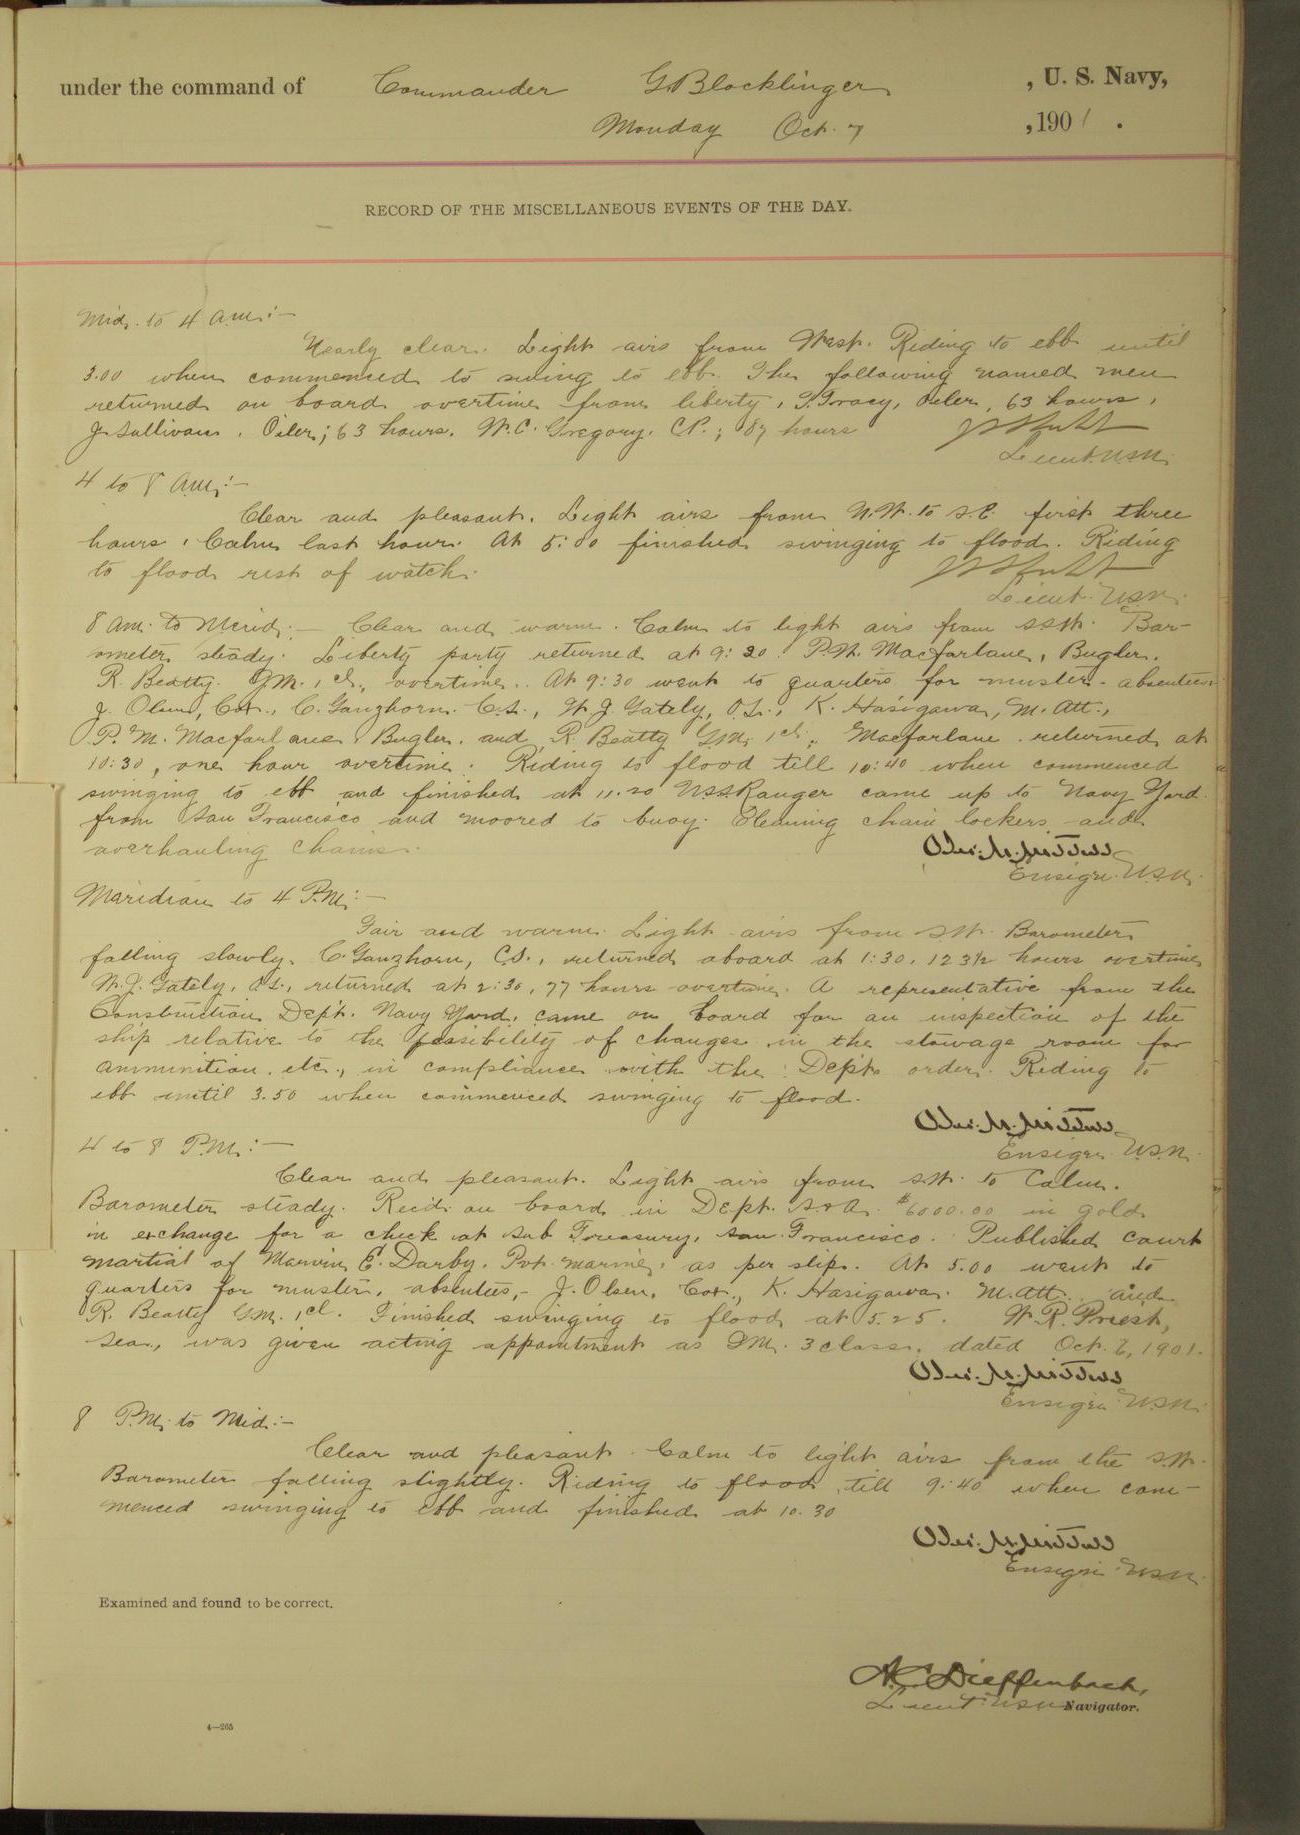 under the command of Commander G. Blocklinger, U. S. Navy,
Monday Oct. 7, 1901.
RECORD OF THE MISCELLANEOUS EVENTS OF THE DAY.
Mid. to 4 a.m.:-
Nearly clear. Light airs from West. Riding to ebb until
3.00 when commenced to swing to ebb. The following named men
returned on board overtime from liberty, T. Tracy, Oiler, 63 hours,
J. Sullivan, Oiler; 63 hours. W.C. Gregory, C.P.; 87 hours
Lieut. U.S.N.
4 to 8 a.m.:-
Clear and pleasant. Light airs from N.W. to S.E. first three
hours, Calm last hour. At 5:00 finished swinging to flood. Riding
to flood rest of watch.
Lieut. U.S.N.
8 am. to Merid.- Clear and warm. Calm to light airs from S.S.W. Bar-
ometer steady. Liberty party returned at 9:20. P.M. Macfarlane, Bugler.
R. Beatty. G.M. 1cl., overtime. At 9:30 went to quarters for muster. absentees:
J. Olsen, Cox., C. Ganzhorn. C.S., W. J. Gately, O.S., K. Hasigawa, M. Att.,
P. M. Macfarlane Bugler. and R. Beatty G.M. 1cl.; Macfarlane returned at
10:30, one hour overtime. Riding to flood till 10:40 when commenced
swinging to ebb and finished at 11.20 U.S.S. Ranger came up to Navy Yard
from San Francisco and moored to buoy. Cleaning chain lockers and
overhauling chains.
Ensign U.S.N.
Meridian to 4 P.M.:-
Fair and warm. Light airs from S.W. Barometer
falling slowly. C. Ganzhorn, C.S., returned aboard at 1:30, 123½ hours overtime
W. J. Gately, O.S., returned at 2:30, 77 hours overtime. A representative from the
Construction Dept. Navy Yard, came on board for an inspection of the
ship relative to the possibility of changes in the stowage room for
ammunition etc., in compliance with the Dept's order. Riding to
ebb until 3.50 when commenced swinging to flood.
Ensign U.S.N.
4 to 8 P.M.:-
Clear and pleasant. Light airs from S.W. to Calm.
Barometer steady. Rec'd. on board in Dept. S. & A. $6000.00 in gold
in exchange for a check at Sub Treasury, San Francisco. Published court
martial of Marvin E. Darby, Pvt. marine, as per slip. At 5.00 went to
quarters for muster, absentees,- J. Olsen, Cox., K. Hasigawa. M. Att. and
R. Beatty G.M. 1cl. Finished swinging to flood at 5.25. W. R. Priest,
Sea., was given acting appointment as G.M. 3 class, dated Oct. 7, 1901.
Ensign U.S.N.
8 P.M. to Mid:-
Clear and pleasant. Calm to light airs from the S.W.
Barometer falling slightly. Riding to flood till 9:40 when com-
menced swinging to ebb and finished at 10.30
Ensign U.S.N.
Examined and found to be correct.
A. C. Dieffenbach,
Lieut U.S.N. Navigator.
4—265